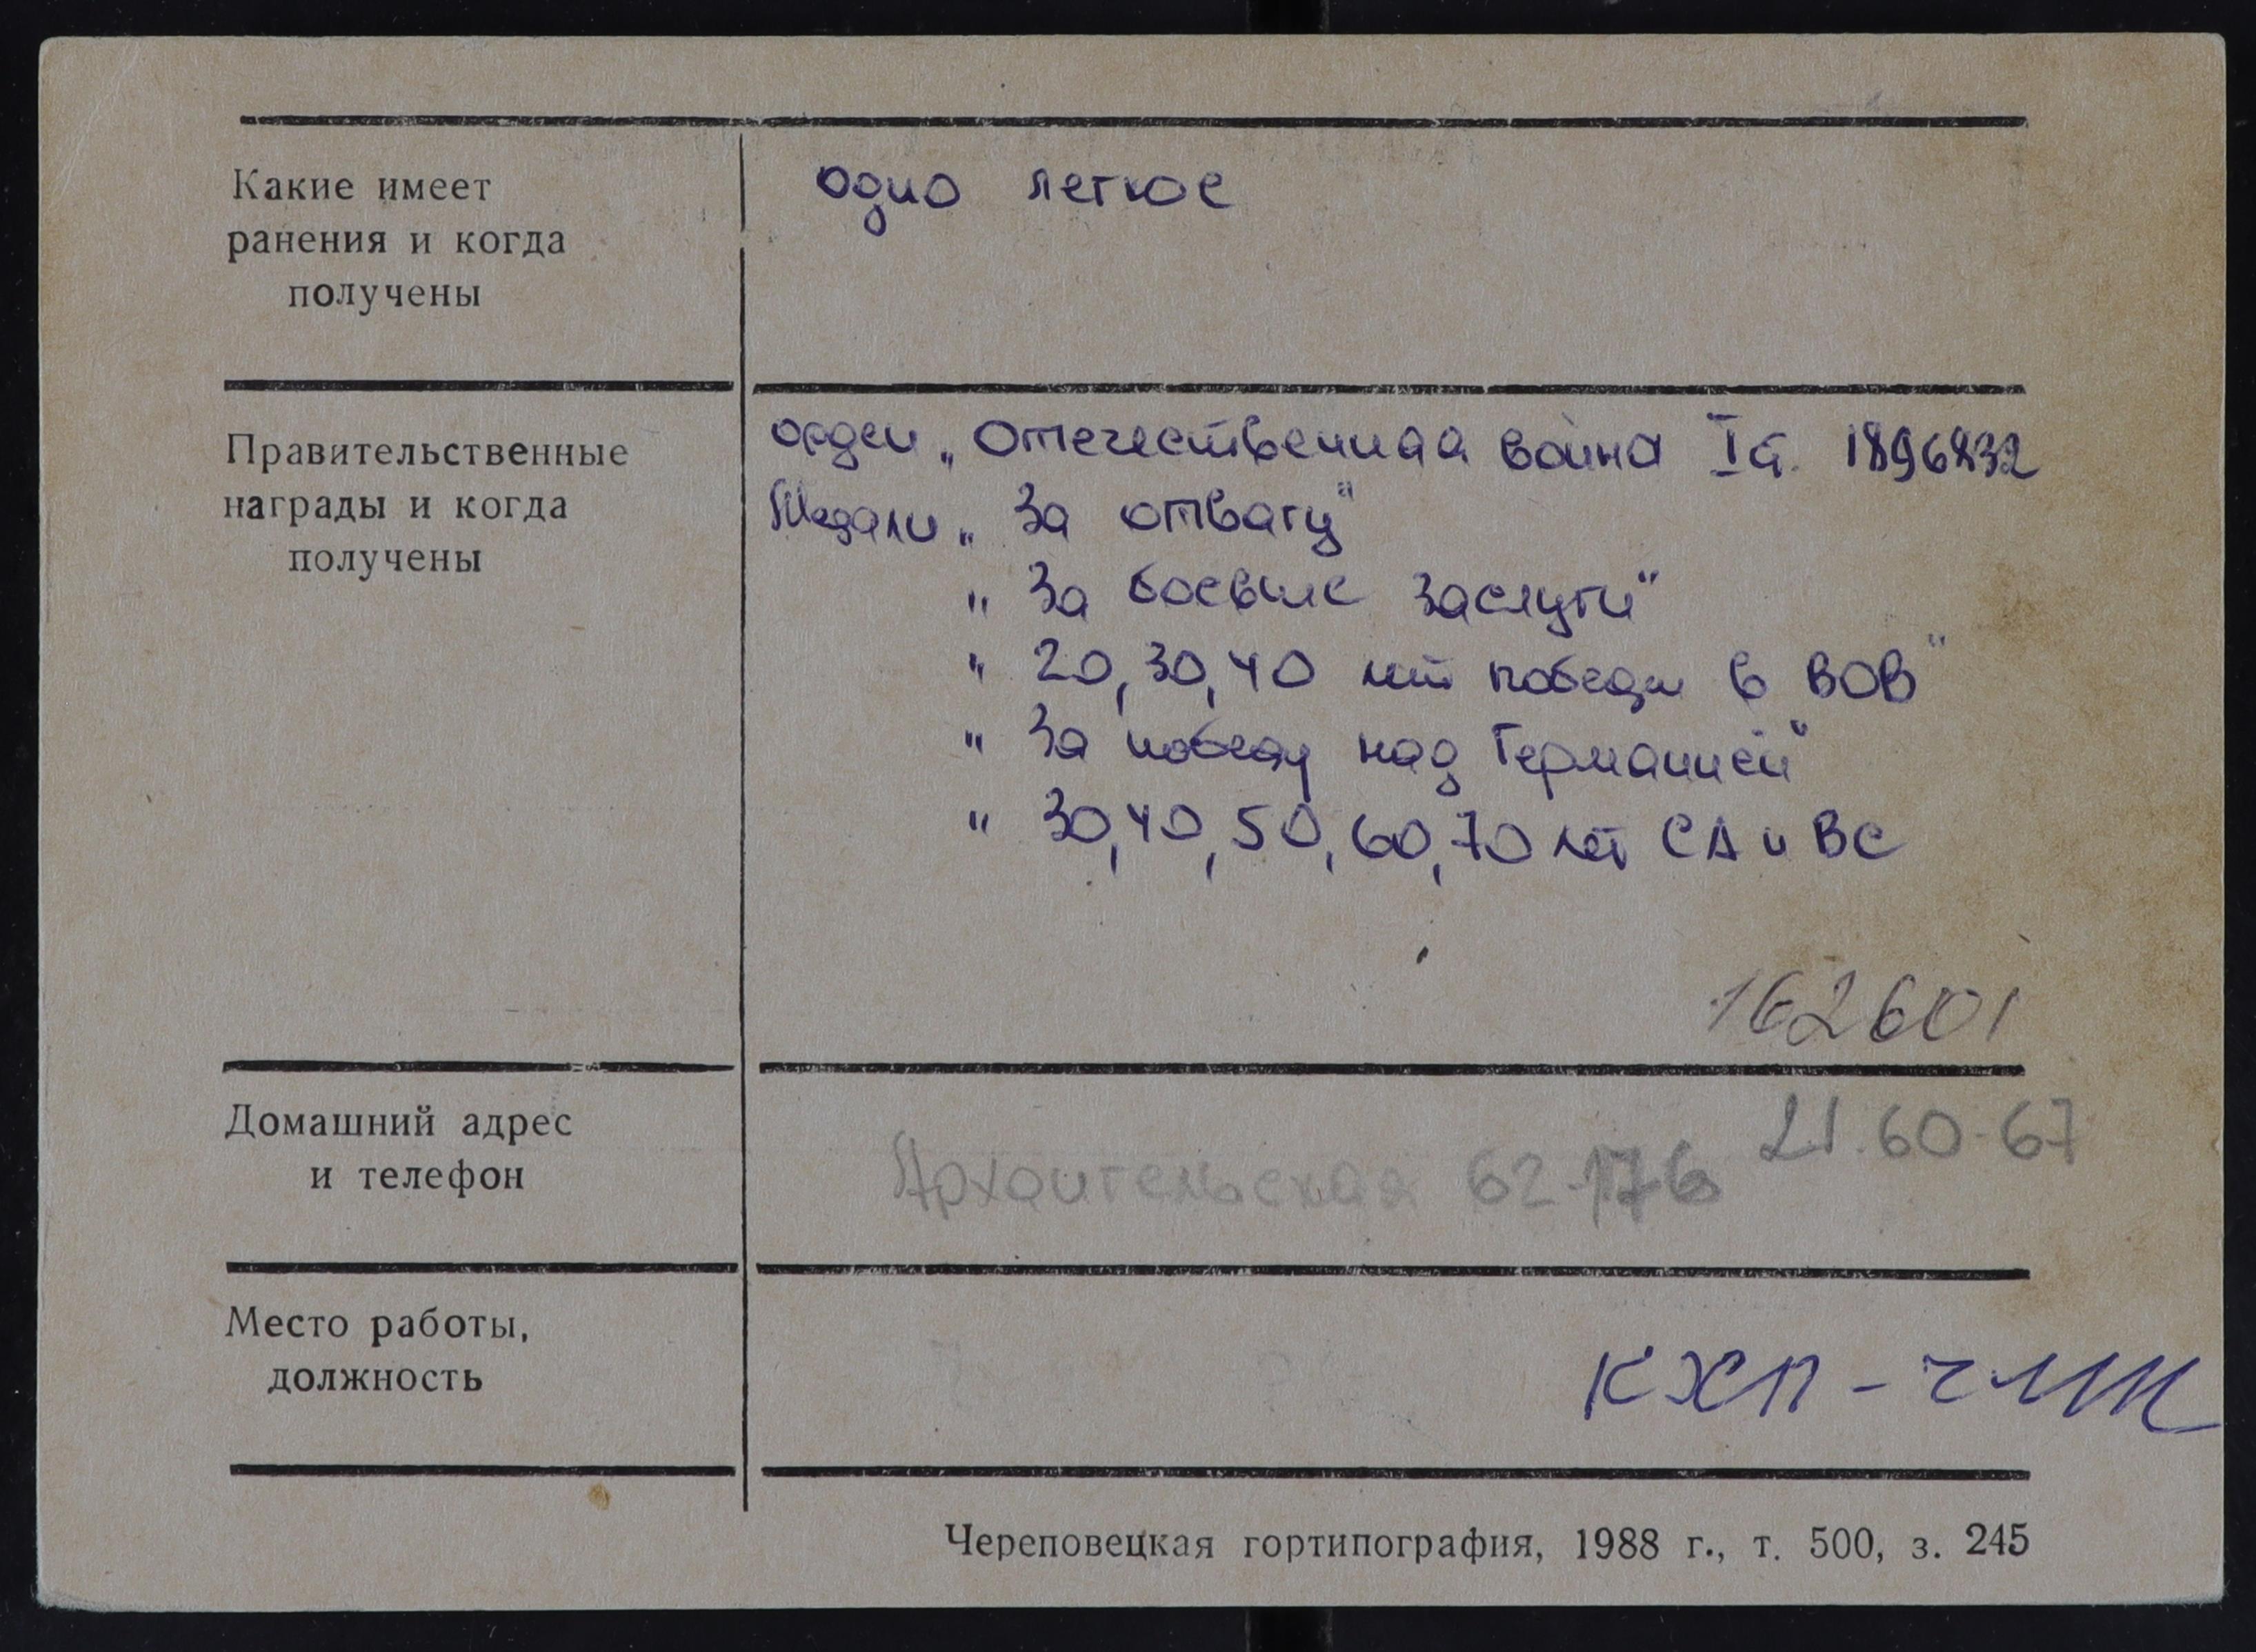 Какие имеет
ранения и когда
получены
одно легкое
Правительственные
награды и когда
получены
орден „Отечественная война I ст. 1896832
Медали „За отвагу"
" За боевые заслуги"
" 20, 30, 40 лет победы в ВОВ"
" За победу над Германией"
" 30, 40, 50, 60, 70 лет СА и ВС
162601
Домашний адрес
и телефон
21.60-67
Архангельская 62-176
Место работы,
должность
КХП - ЧМК
Череповецкая гортипография, 1988 г., т. 500, з. 245